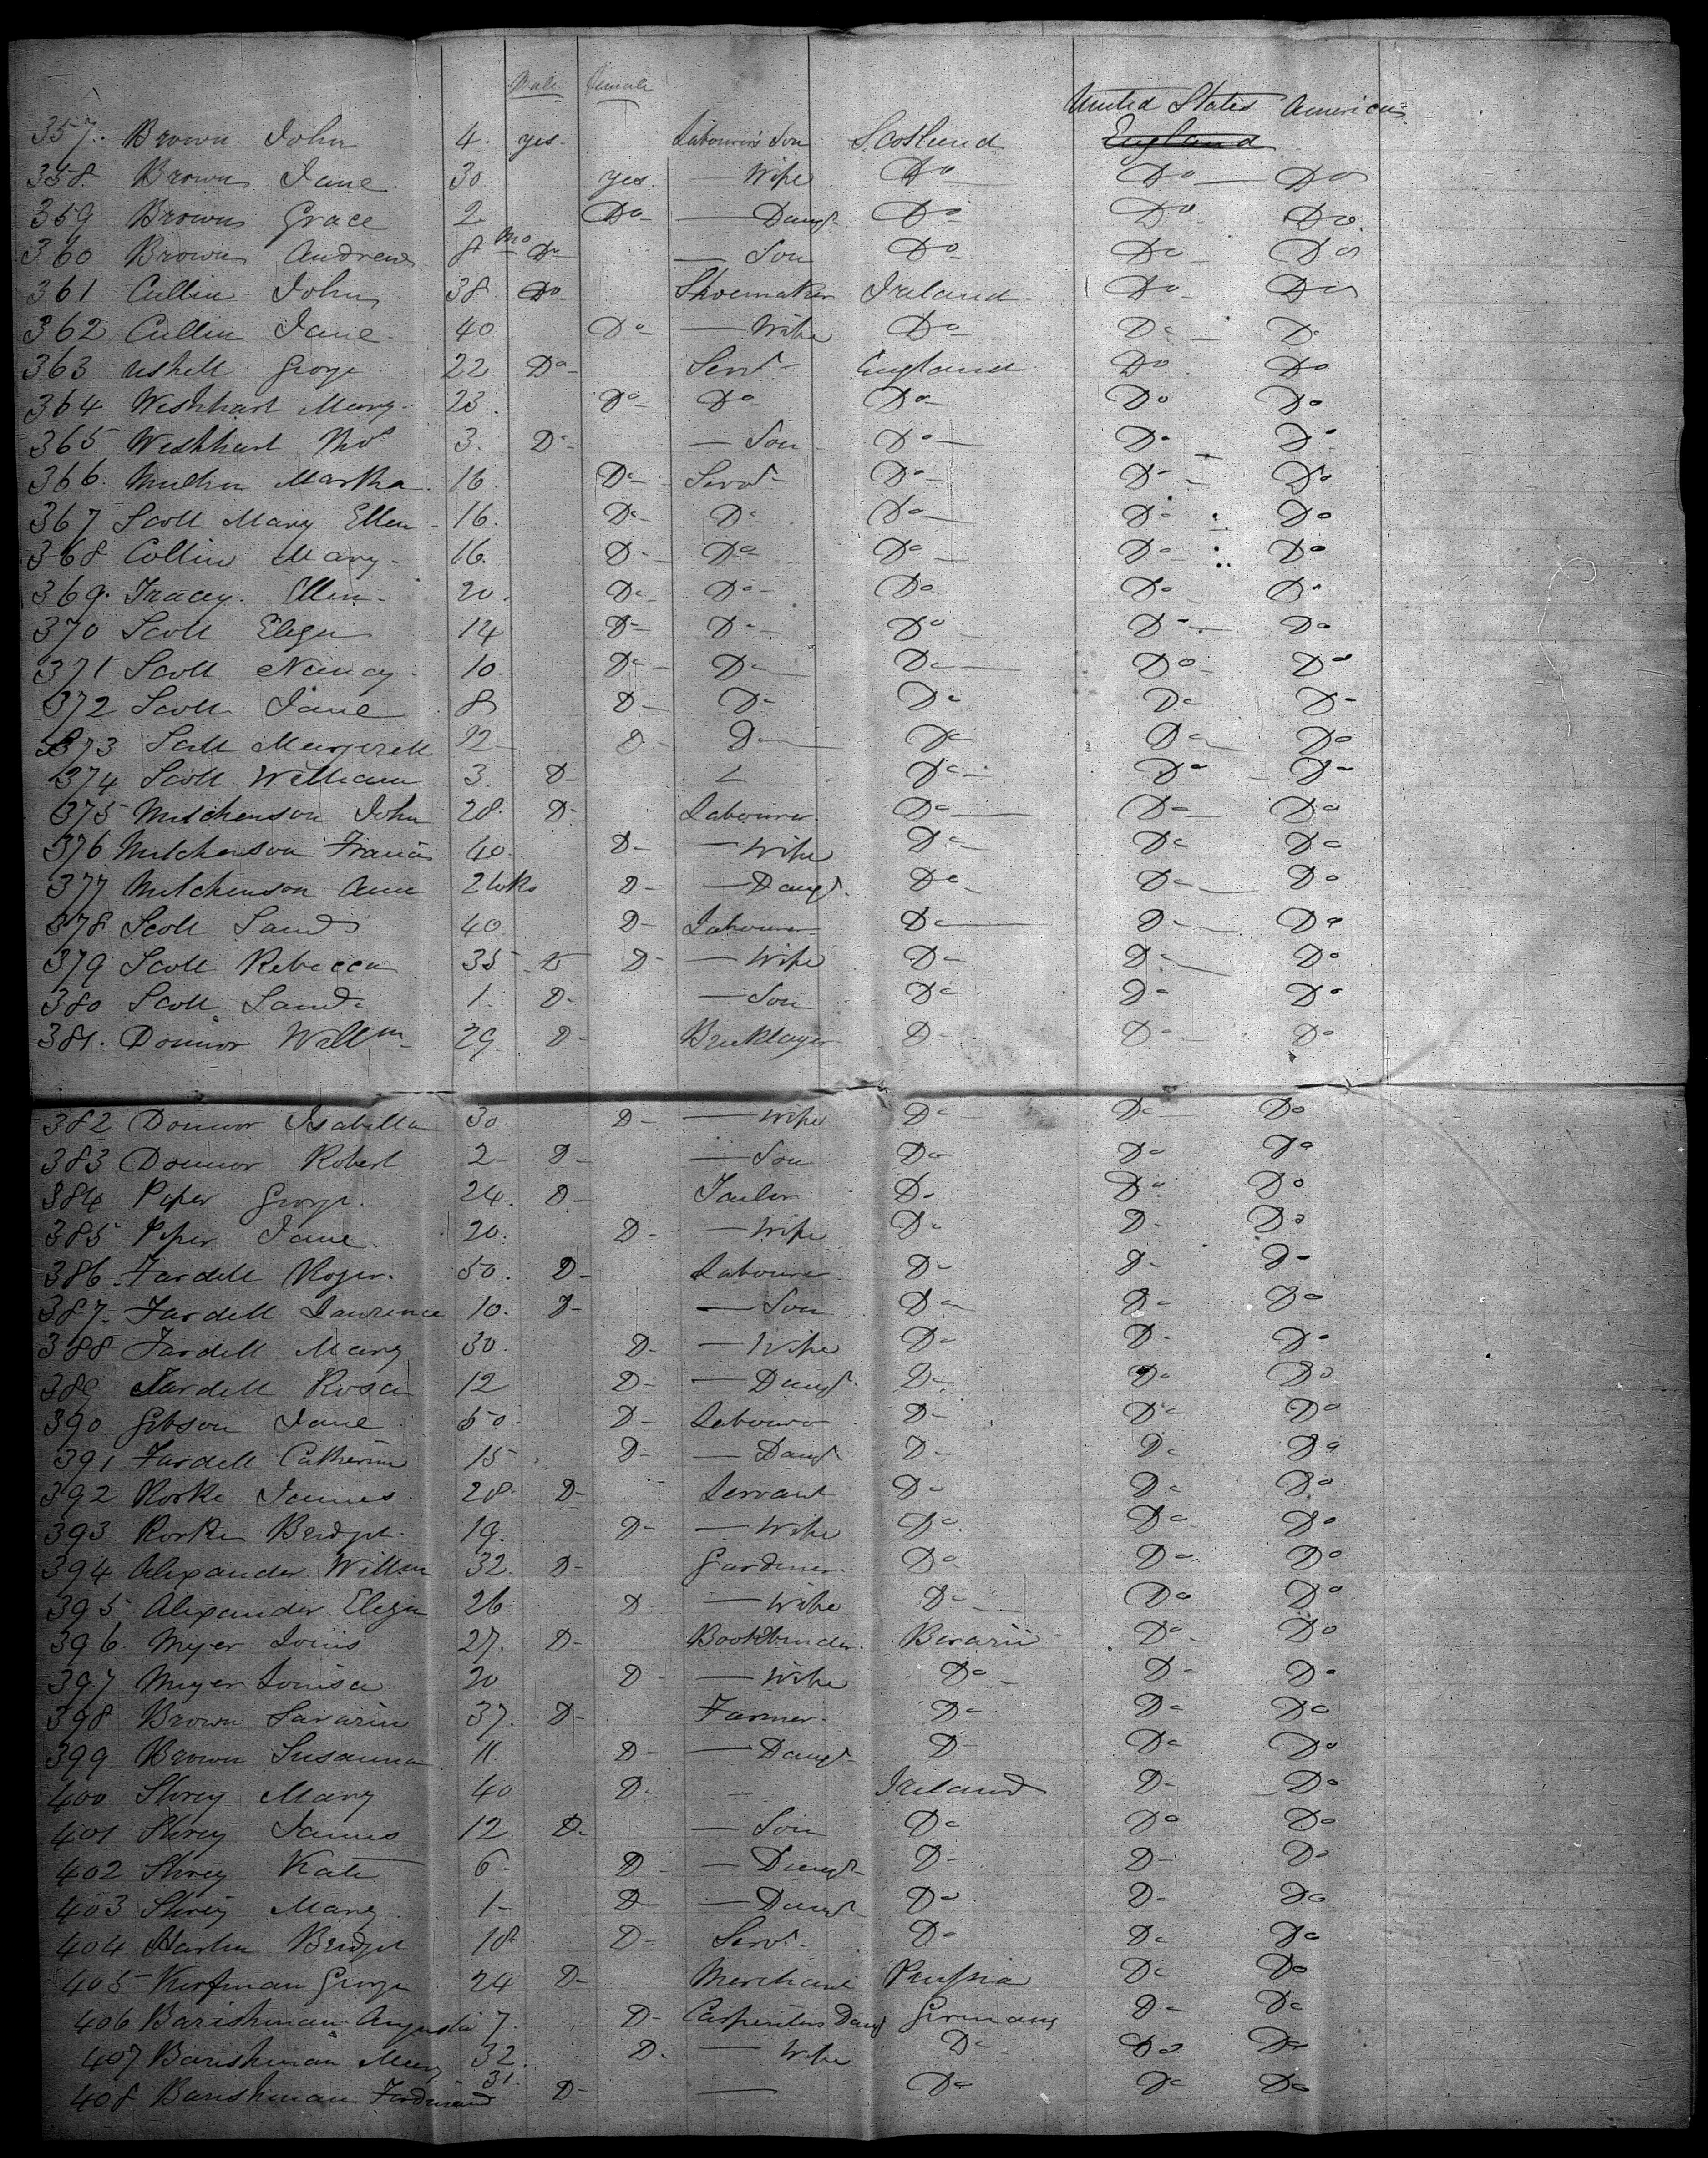 Male Female
United States America
357. Brown John 4. yes. Labourer's Son Scotland England
358. Brown Jane 30 yes. — Wife Do Do Do
359 Brown Grace 2 Do — Daugt Do Do Do
360 Brown Andrew 8 Mo Do — Son Do Do Do
361 Cullin John 38 Do Shoemaker Ireland Do Do
362 Cullin Jane 40 Do — Wife Do Do Do
363 George 22 Do Servt England Do Do
364 Wishhart Mary 23 Do Do Do Do Do
365 Wishhart Thos 3. Do — Son Do Do Do
366. Martha 16 Do Servt Do Do Do
367 Scott Mary Ellen 16. Do Do Do Do Do
368 Collin Mary 16. Do Do Do Do Do
369. Tracey. Ellen 20. Do Do Do Do Do
370 Scott Eliza 14 Do Do Do Do Do
371 Scott Nancy 10. Do Do Do Do Do
372 Scott Jane 8 Do Do Do Do Do
373 Scott Margerett 12 Do Do Do Do Do
374 Scott William 3. Do Do Do Do
375 Mitchenson John 28. Do Labourer Do Do Do
376 Mitchenson Francis 40 Do — Wife Do Do Do
377 Mitchenson Ann 2 wks Do — Daugt. Do Do Do
378 Scott Saml 40 Do Labourer Do Do Do
379 Scott Rebecca 35 Do Do — Wife Do Do Do
380 Scott Saml 1. Do — Son Do Do Do
381. Donnor Willm 29. Do Bricklayer Do Do Do
382 Donnor Isabella 30 Do — Wife Do Do Do
383 Donnor Robert 2 Do — Son Do Do Do
384 Piper George. 24. Do Tailor Do Do Do
385 Piper Jane 20. Do — Wife Do Do Do
386. Fardell Roger. 50. Do Labourer Do Do Do
387. Fardell Lawrence 10. Do — Son Do Do Do
388 Fardell Mary 30. Do — Wife Do Do Do
389 Fardell Rosa 12 Do — Daugt Do Do Do
390 Gibson Jane 50 Do Labourer Do Do Do
391 Fardell Catherine 15 Do — Daugt Do Do Do
392 Rorke James 28. Do Servant Do Do Do
393 Rorke Bridget 19. Do — Wife Do Do Do
394 Alexander Willm 32. Do Gardiner Do Do Do
395 Alexander Eliza 26 Do — Wife Do Do Do
396. Meyer Louis 27. Do Bookbinder. Bavarii Do Do
397 Meyer Louisa 20 Do — Wife Do Do Do
398 Brown Savarin 37. Do Farmer Do Do Do
399 Brown Susanna 11. Do — Daugt Do Do Do
400 Shrey Mary 40 Do Ireland Do Do
401 Shrey James 12 Do — Son Do Do Do
402 Shrey Kate 6 Do — Daugt Do Do Do
403 Shrey Mary 1 Do — Daugt Do Do Do
404 Bridget 18 Do Servt Do Do Do
405 George 24 Do Merchant Prussia Do Do
406 Barishman Augusta 7. Do Carpenters Daugt Germany Do Do
407 Barishman Mary 32. Do — Wife Do Do Do
408 Barishman Ferdinand 31. Do — Do Do Do